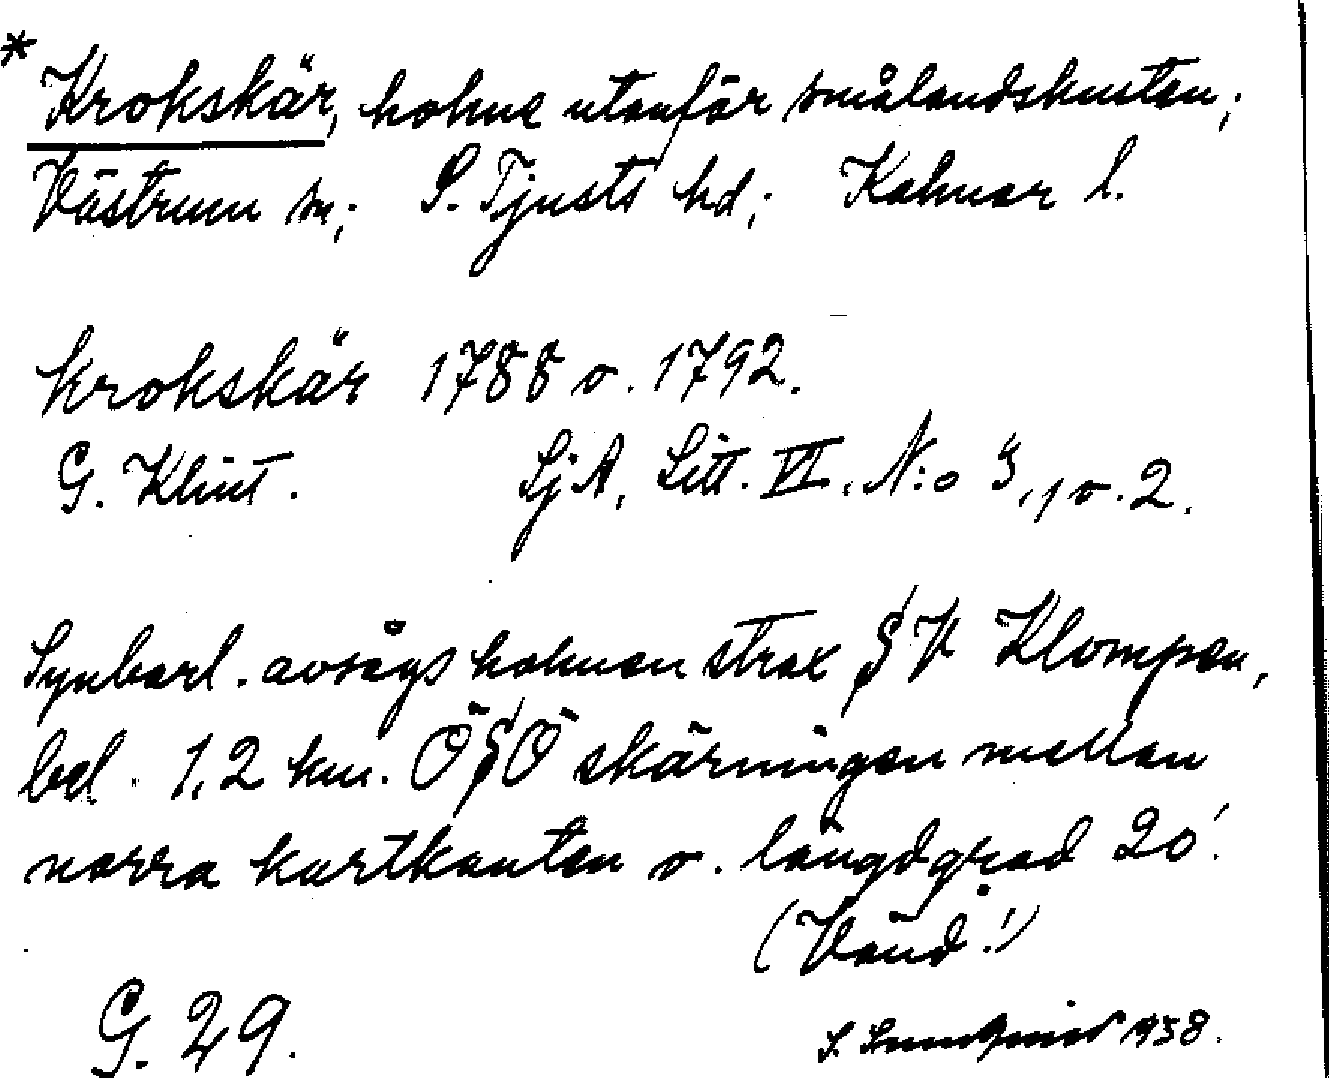 * Krokskär, holme utanför smålandskusten;
Västrum sn; S. Tjusts hd; Kalmar l.
Krokskär 1788 o. 1792.
G. Klint. SjA, Litt. VI. N:o 3, 1 o. 2.
Synbarl. avsågs holmen strax SV Klompen,
bel. 1,2 km. ÖSÖ skärningen mellan
norra kartkanten o. längdgrad 20'.
(Vänd!)
G. 29. S. 1958.